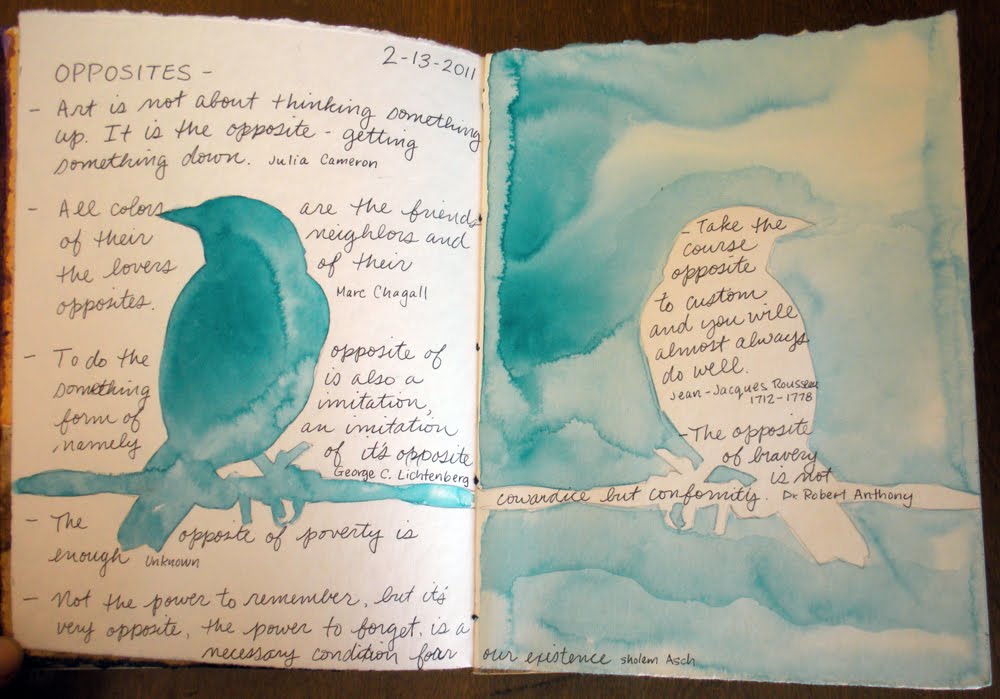 2-13-2011
OPPOSITES -
- Art is not about thinking something
up. It is the opposite - getting
something down. Julia Cameron
- All colors are the friends
of their neighbors and
the lovers of their
opposites. Marc Chagall
- To do the opposite of
something is also a
form of imitation,
namely an imitation
of it's opposite
George C. Lichtenberg
- The opposite of poverty is
enough Unknown
- Not the power to remember, but it's
very opposite, the power to forget, is a
necessary condition four our existence Sholem Asch
- Take the
course
opposite
to custom
and you will
almost always
do well.
Jean-Jacques Rousseau
1712-1778
- The opposite
of bravery
is not
cowardice but conformity. Dr Robert Anthony